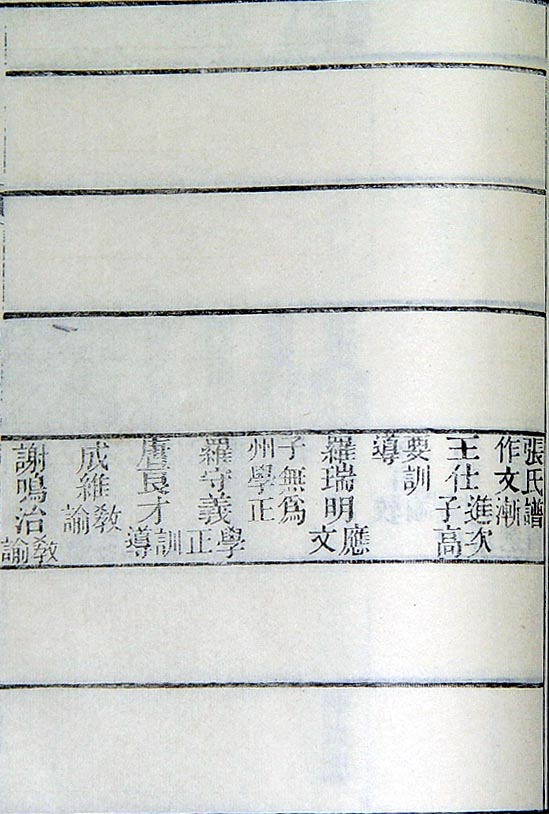 張氏譜
作文漸
王仕進次
子高
要訓
導
羅瑞明應
文
子無爲
州學正
羅守義學
正
盧良才訓
導
成維教
諭
謝鳴治教
諭